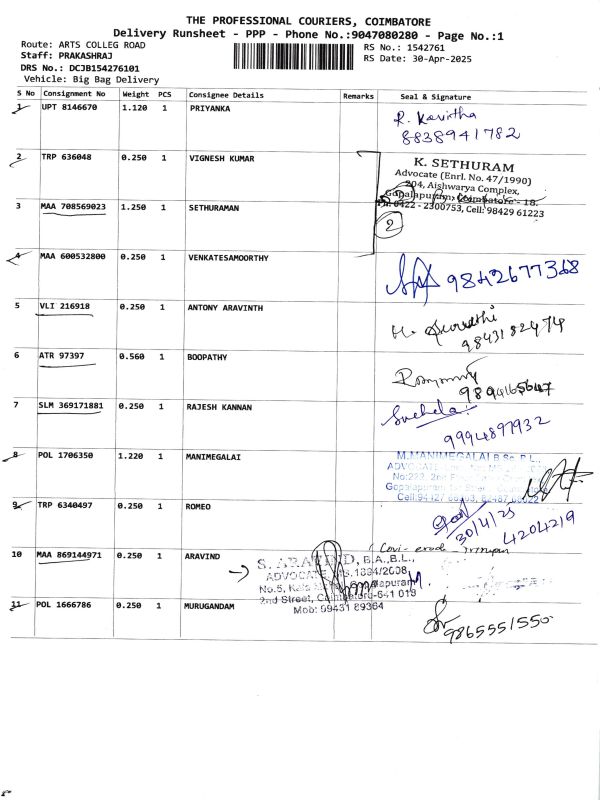 THE PROFESSIONAL COURIERS, COIMBATORE
Delivery Runsheet - PPP - Phone No.:9047080280 - Page No.:1
Route: ARTS COLLEG ROAD
Staff: PRAKASHRAJ
DRS No.: DCJB154276101
Vehicle: Big Bag Delivery
RS No.: 1542761
RS Date: 30-Apr-2025
S No Consignment No Weight PCS Consignee Details Remarks Seal & Signature
1 UPT 8146670 1.120 1 PRIYANKA
R. Kavitha
8838941782
2 TRP 636048 0.250 1 VIGNESH KUMAR
K. SETHURAM
Advocate (Enrl. No. 47/1990)
204, Aishwarya Complex,
Gopalapuram, Coimbatore - 18.
Ph: 0422 - 2300753, Cell: 98429 61223
3 MAA 708569023 1.250 1 SETHURAMAN
2
4 MAA 600532800 0.250 1 VENKATESAMOORTHY
9842677368
5 VLI 216918 0.250 1 ANTONY ARAVINTH
9843182474
6 ATR 97397 0.560 1 BOOPATHY
7 SLM 369171881 0.250 1 RAJESH KANNAN
Suchela
9994897932
8 POL 1706350 1.220 1 MANIMEGALAI
M.MANIMEGALAI B.Sc., B.L.,
ADVOCATE
No:222, 2nd
Gopalapuram
9 TRP 6340497 0.250 1 ROMEO
30/4/25
4204219
10 MAA 869144971 0.250 1 ARAVIND
S. ARAVIND, B.A.,B.L.,
ADVOCATE 1894/2008
2nd Street, Coimbatore-641 018
Mob: 99431 89364
11 POL 1666786 0.250 1 MURUGANDAM
9865551550